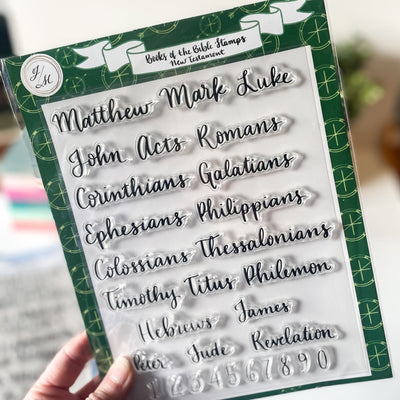 Books of the Bible Stamps
New Testament
JM
Matthew Mark Luke
John Acts Romans
Corinthians Galatians
Ephesians Philippians
Colossians Thessalonians
Timothy Titus Philemon
Hebrews James
Jude Revelation
1 2 3 4 5 6 7 8 9 0